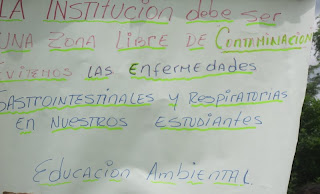 LA INSTITUCIÓN debe ser
UNA ZONA LIBRE DE CONTAMINACION
EVITEMOS LAS ENFERMEDADES
GASTROINTESTINALES Y RESPIRATORIAS
EN NUESTROS ESTUDIANTES
EDUCACION AMBIENTAL